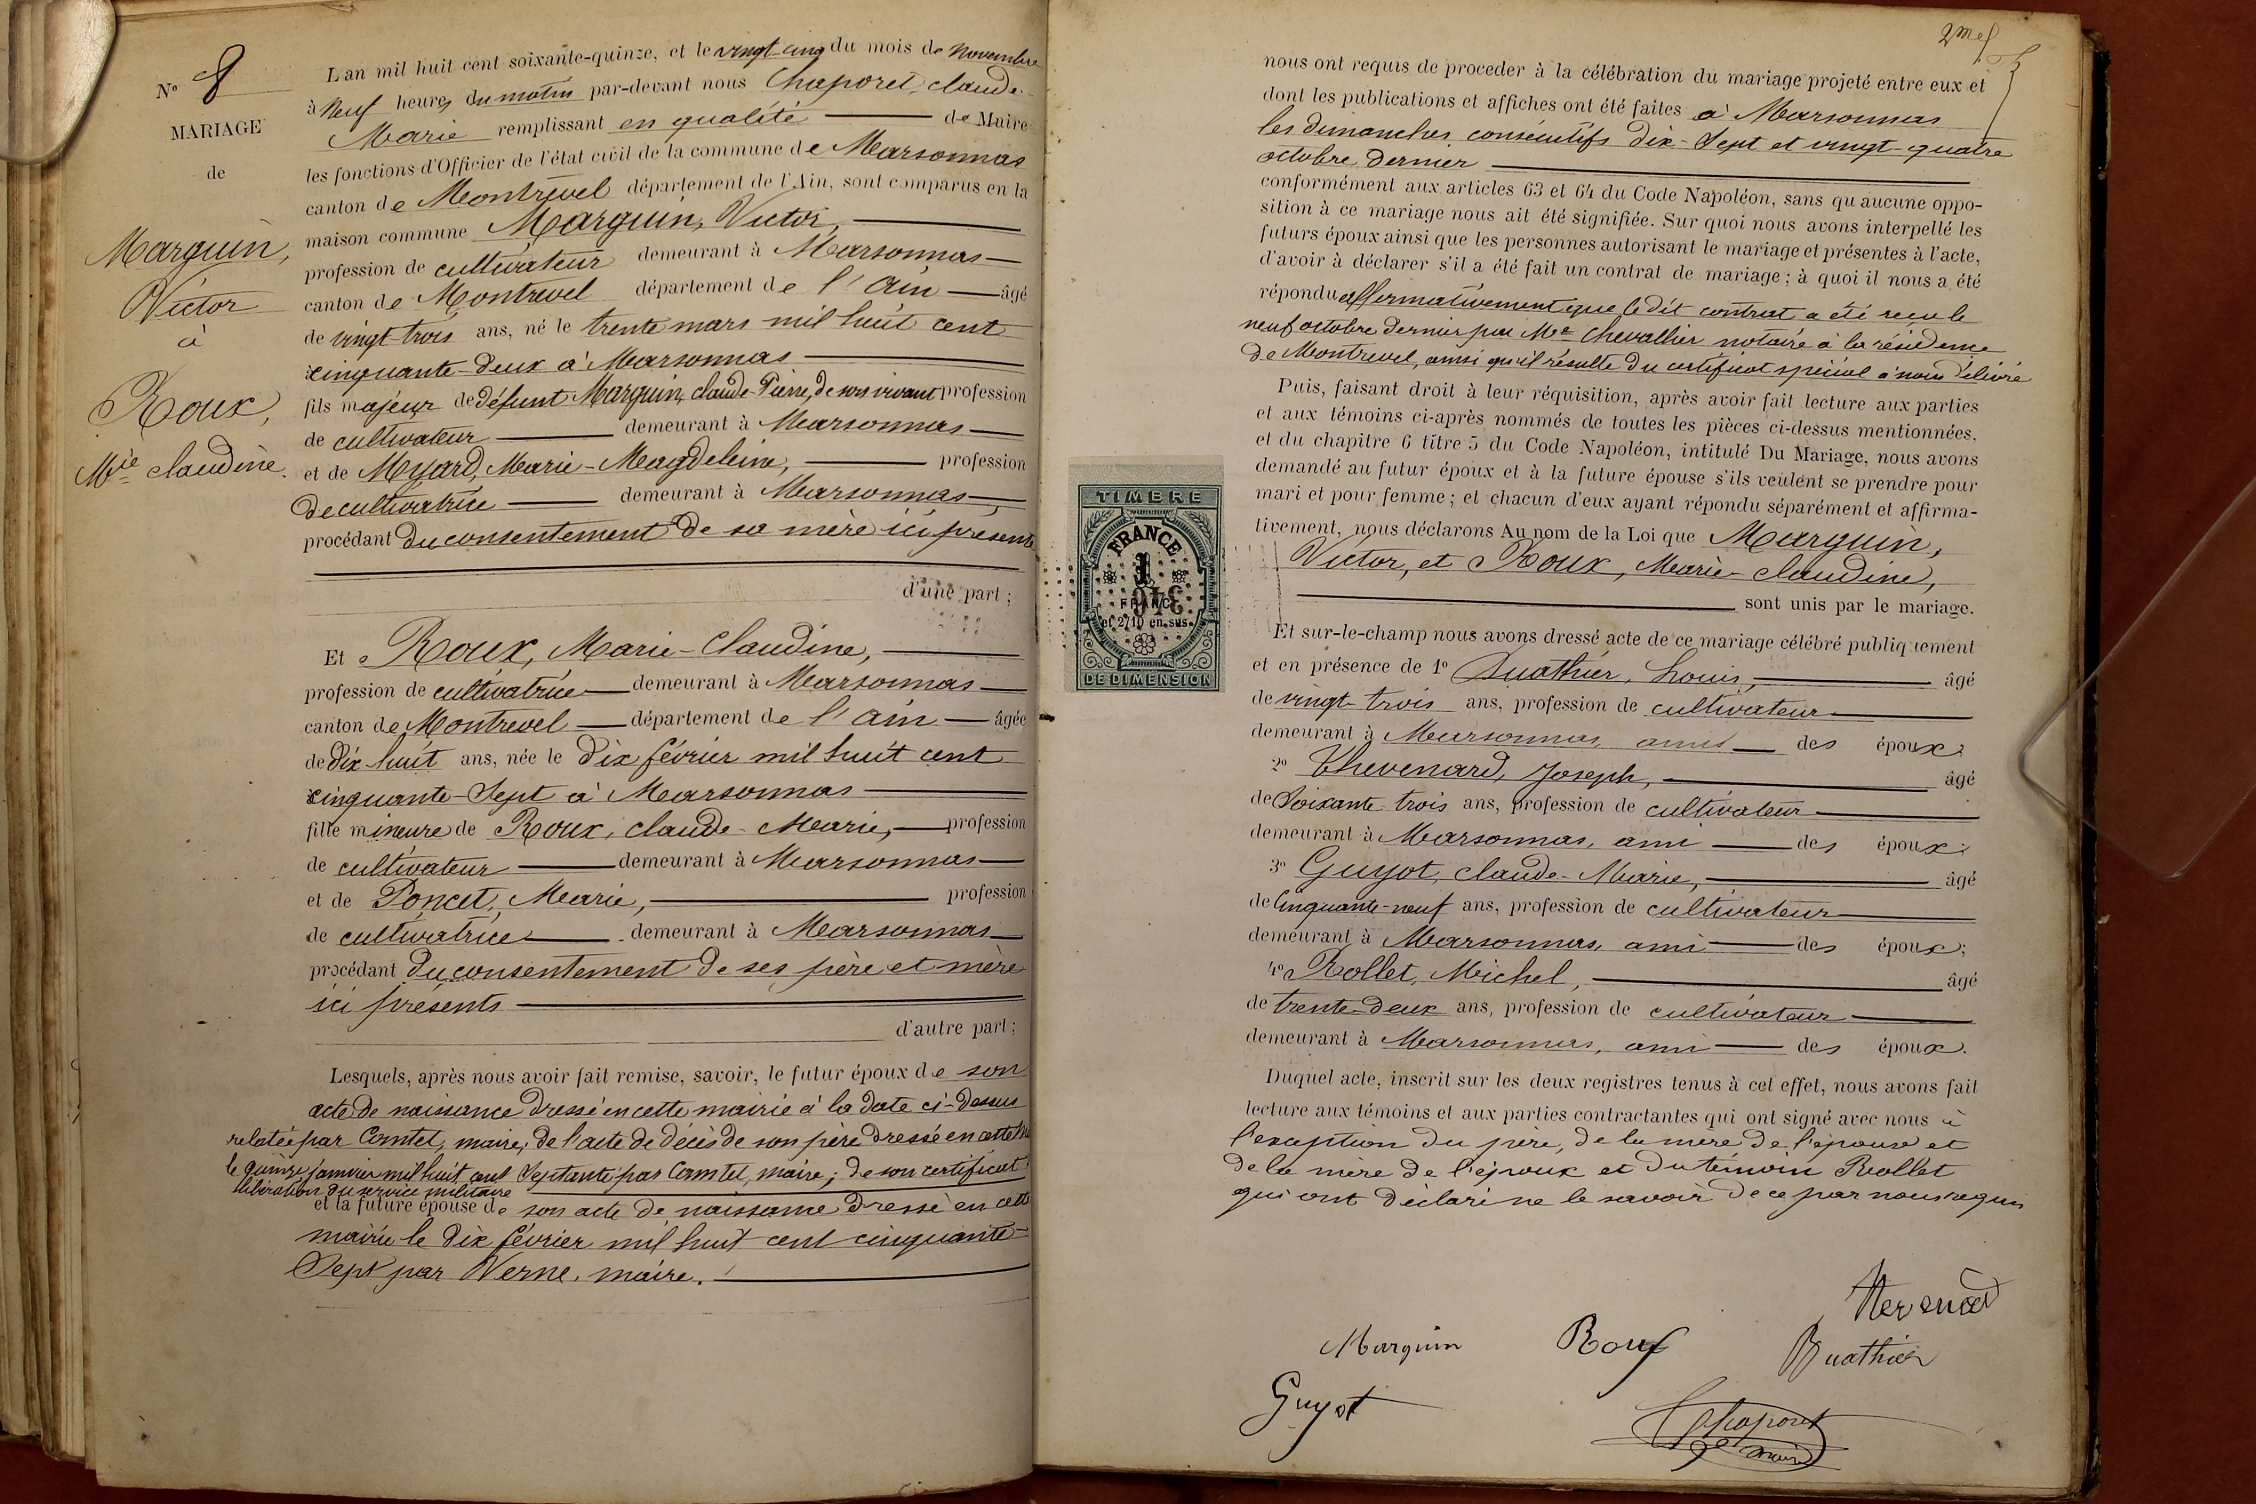 N° 8
MARIAGE
de
Marguin,
Victor
à
Roux,
Mie claudine.
L'an mil huit cent soixante-quinze, et le vingt-cinq du mois de Novembre
à Neuf heures du matin par-devant nous Chaporel, claude-
Marie remplissant en qualité de Maire
les fonctions d'Officier de l'état civil de la commune de Marsonnas
canton de Montrevel département de l'Ain, sont comparus en la
maison commune Marguin, Victor,
profession de cultivateur demeurant à Marsonnas
canton de Montrevel département de l'ain âgé
de vingt-trois ans, né le trente mars mil huit cent
cinquante-deux à Marsonnas
fils majeur de défunt Marguin, claude-Pierre, de son vivant profession
de cultivateur demeurant à Marsonnas
et de Myard, Marie-Magdeleine, profession
de cultivatrice demeurant à Marsonnas
procédant du consentement de sa mère ici présente
d'une part;
Et Roux, Marie-Claudine,
profession de cultivatrice demeurant à Marsonnas
canton de Montrevel département de l'ain âgée
de Dix-huit ans, née le Dix février mil huit cent
cinquante-Sept à Marsonnas
fille mineure de Roux, claude-Marie, profession
de cultivateur demeurant à Marsonnas
et de Poncet, Marie, profession
de cultivatrice demeurant à Marsonnas
procédant du consentement de ses père et mère
ici présents
d'autre part;
Lesquels, après nous avoir fait remise, savoir, le futur époux de son
acte de naissance dressé en cette mairie à la date ci-dessus
relatée par Comtet, maire; de l'acte de décès de son père dressé en cette
le quinze janvier mil huit cent Septante par Comtet, maire; de son certificat
libération du service militaire
et la future épouse de son acte de naissance dressé en cette
mairie le Dix février mil huit cent cinquante-
Sept par Verne, maire.
2me f
nous ont requis de procéder à la célébration du mariage projeté entre eux et
dont les publications et affiches ont été faites à Marsonnas
les dimanches consécutifs dix-Sept et vingt-quatre
octobre dernier
conformément aux articles 63 et 64 du Code Napoléon, sans qu'aucune oppo-
sition à ce mariage nous ait été signifiée. Sur quoi nous avons interpellé les
futurs époux ainsi que les personnes autorisant le mariage et présentes à l'acte,
d'avoir à déclarer s'il a été fait un contrat de mariage; à quoi il nous a été
répondu affirmativement que le dit contrat a été reçu le
neuf octobre dernier par Me Chevallier notaire à la résidence
de Montrevel, ainsi qu'il résulte du certificat spécial à nous délivré
Puis, faisant droit à leur réquisition, après avoir fait lecture aux parties
et aux témoins ci-après nommés de toutes les pièces ci-dessus mentionnées,
et du chapitre 6 titre 5 du Code Napoléon, intitulé Du Mariage, nous avons
demandé au futur époux et à la future épouse s'ils veulent se prendre pour
mari et pour femme; et chacun d'eux ayant répondu séparément et affirma-
tivement, nous déclarons Au nom de la Loi que Marguin,
Victor, et Roux, Marie-claudine,
sont unis par le mariage.
Et sur-le-champ nous avons dressé acte de ce mariage célébré publiquement
et en présence de 1° Buathier, Louis, âgé
de vingt-trois ans, profession de cultivateur
demeurant à Marsonnas, ami des époux;
2° Thevenard, Joseph, âgé
de Soixante-trois ans, profession de cultivateur
demeurant à Marsonnas, ami des époux;
3° Guyot, claude-Marie, âgé
de Cinquante-neuf ans, profession de cultivateur
demeurant à Marsonnas, ami des époux;
4° Rollet, Michel, âgé
de trente-deux ans, profession de cultivateur
demeurant à Marsonnas, ami des époux.
Duquel acte, inscrit sur les deux registres tenus à cet effet, nous avons fait
lecture aux témoins et aux parties contractantes qui ont signé avec nous à
l'exception du père, de la mère de l'épouse et
de la mère de l'époux et du témoin Rollet
qui ont déclaré ne le savoir de ce par nous requis
TIMBRE
FRANCE
1
FRANC
et 2/10 en sus.
DE DIMENSION
Marguin
Roux
Buathier
Guyot
Chaporel
maire